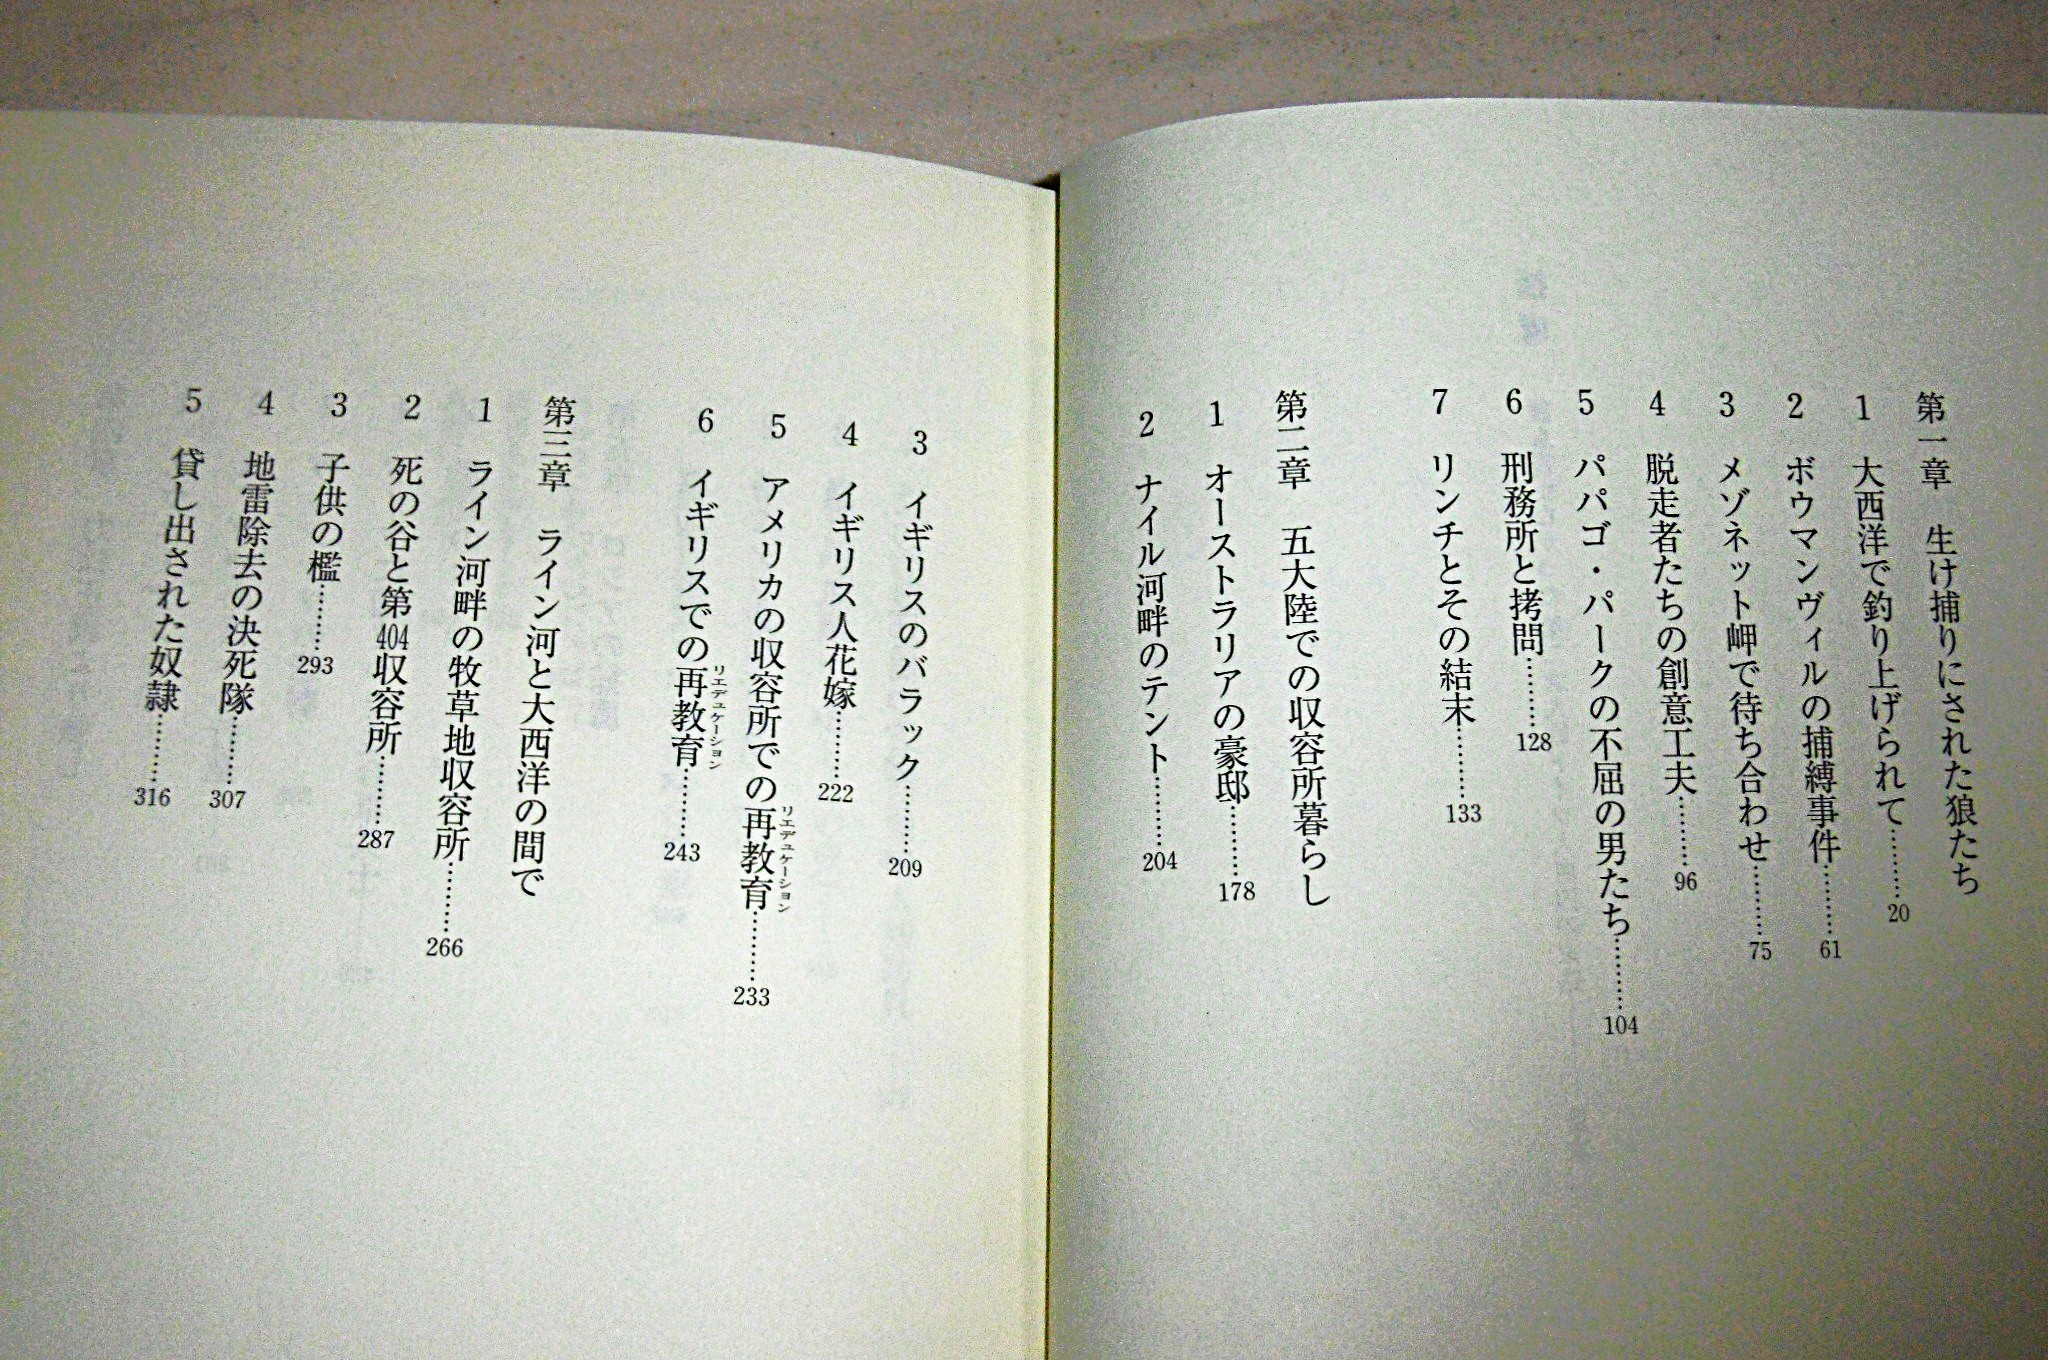 第一章　生け捕りにされた狼たち
1　大西洋で釣り上げられて………20
2　ボウマンヴィルの捕縛事件………61
3　メゾネット岬で待ち合わせ………75
4　脱走者たちの創意工夫………96
5　パパゴ・パークの不屈の男たち………104
6　刑務所と拷問………128
7　リンチとその結末………133
第二章　五大陸での収容所暮らし
1　オーストラリアの豪邸………178
2　ナイル河畔のテント………204
3　イギリスのバラック………209
4　イギリス人花嫁………222
5　アメリカの収容所での再教育リエデュケーション………233
6　イギリスでの再教育リエデュケーション………243
第三章　ライン河と大西洋の間で
1　ライン河畔の牧草地収容所………266
2　死の谷と第404収容所………287
3　子供の檻………293
4　地雷除去の決死隊………307
5　貸し出された奴隷………316